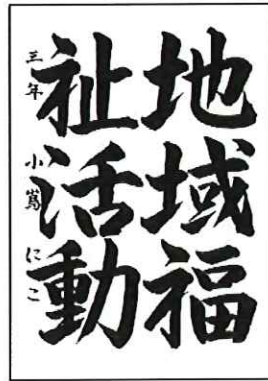 地域福
祉活動
三年 小嶌 にこ